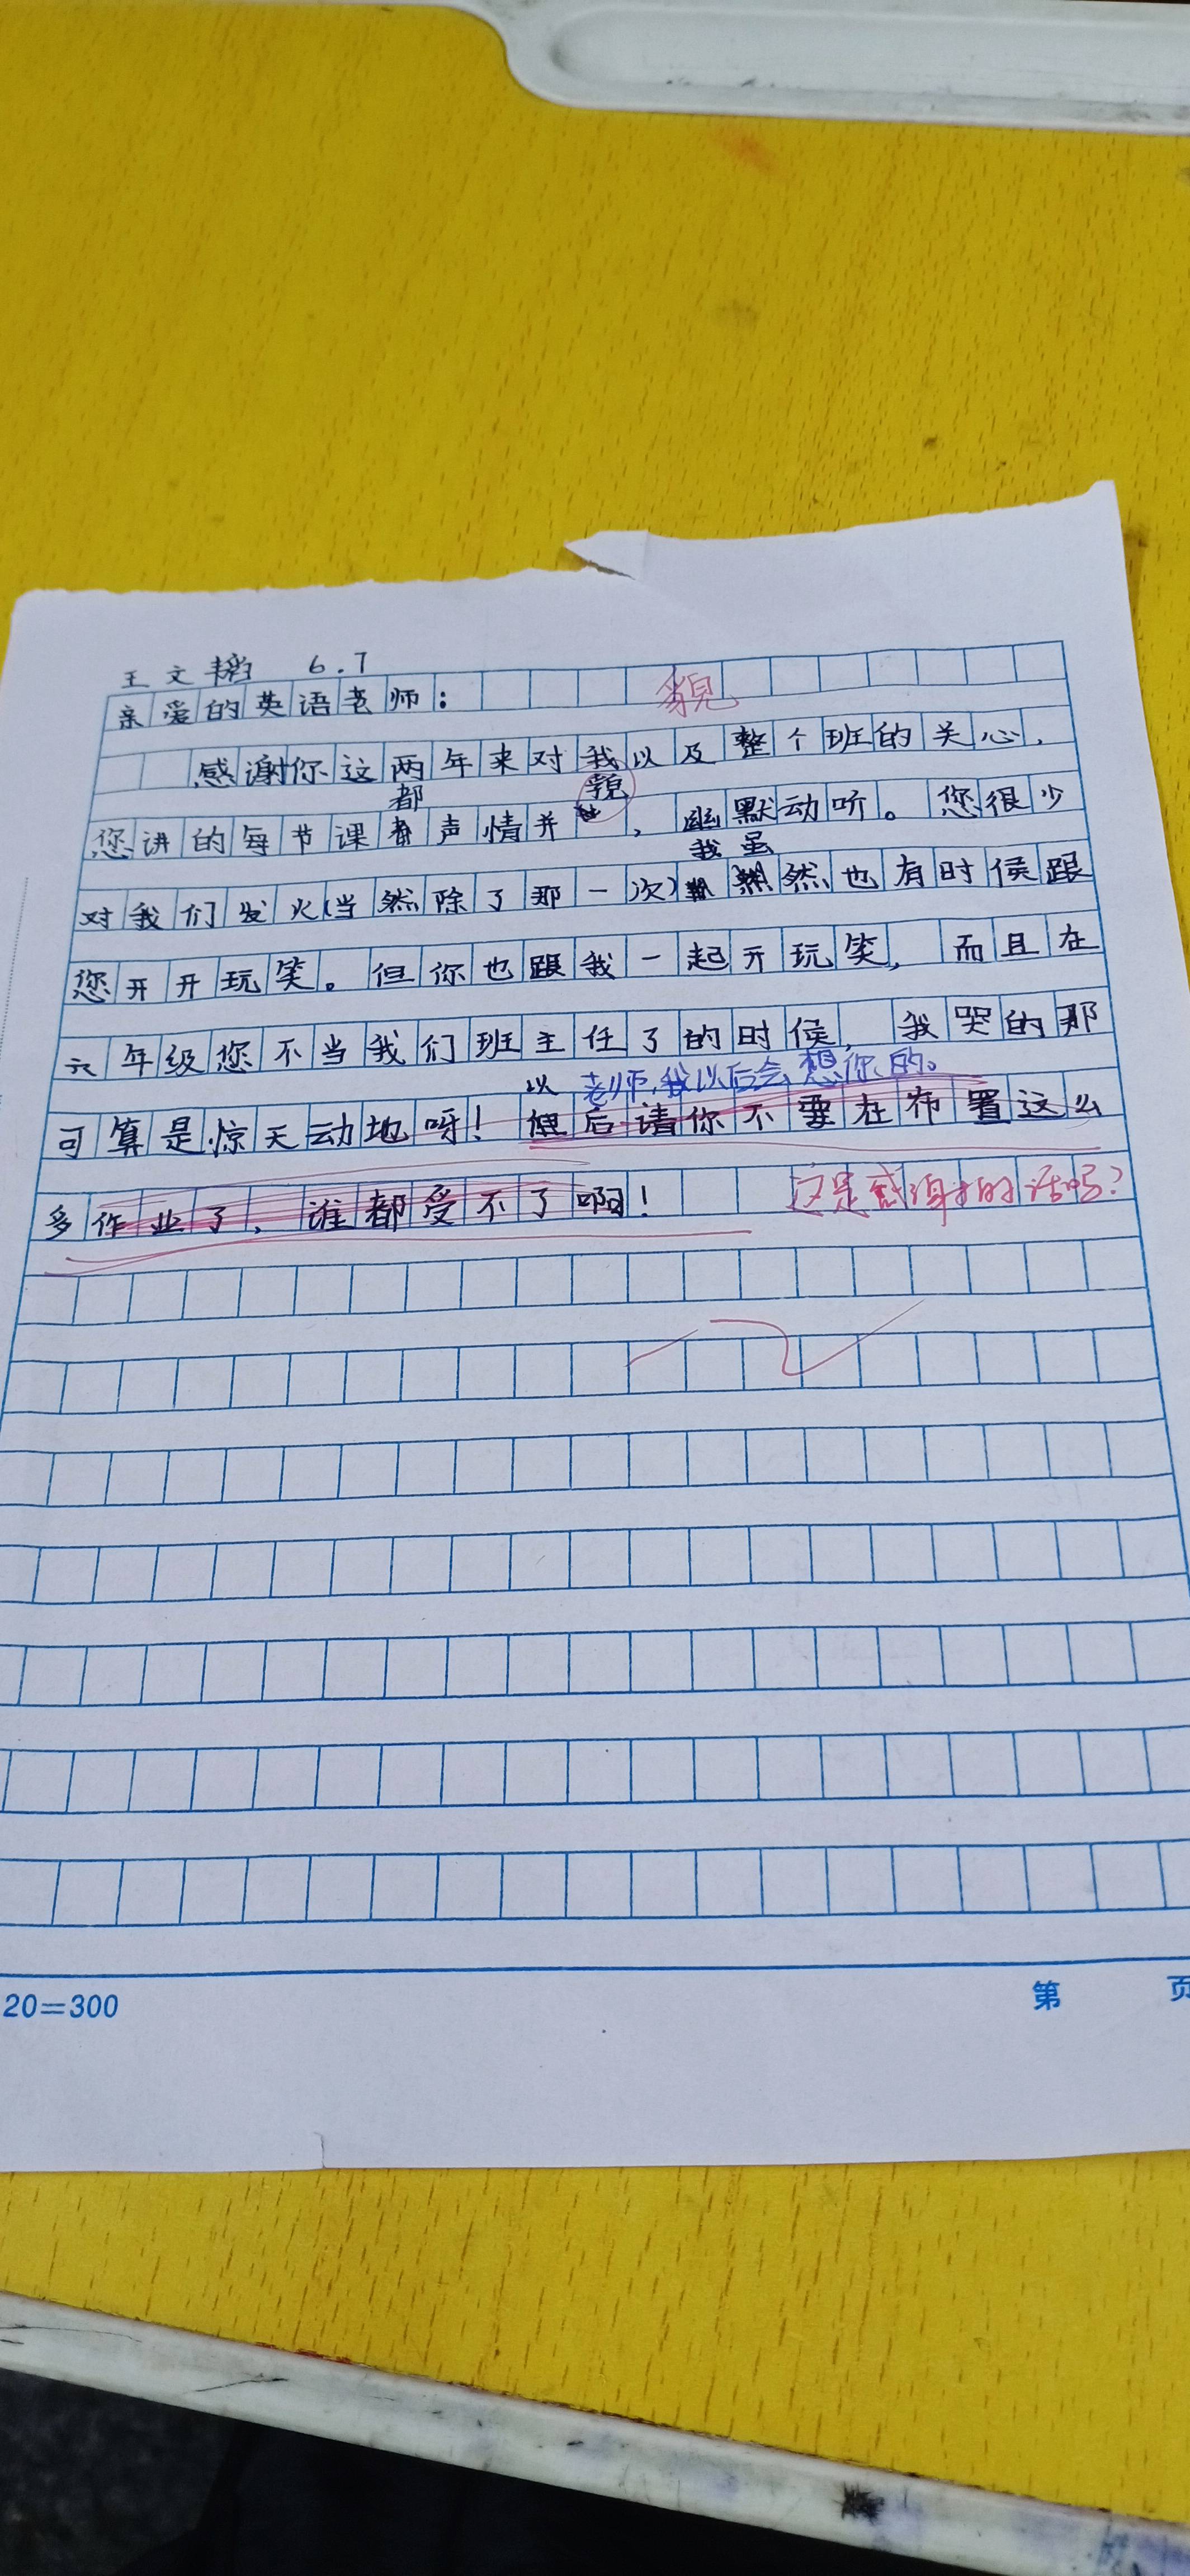 王文韬 6.7
亲爱的英语老师：
貌
感谢你这两年来对我以及整个班的关心，
都
貌
您讲的每节课声情并，幽默动听。您很少
我虽
对我们发火(当然除了那一次)然也有时候跟
您开开玩笑。但你也跟我一起开玩笑，而且在
六年级您不当我们班主任了的时候，我哭的那
以 老师，我以后会想你的。
可算是惊天动地呀！后请你不要在布置这么
多作业了，谁都受不了啊！
这是感谢的话吗？
20=300
第 页